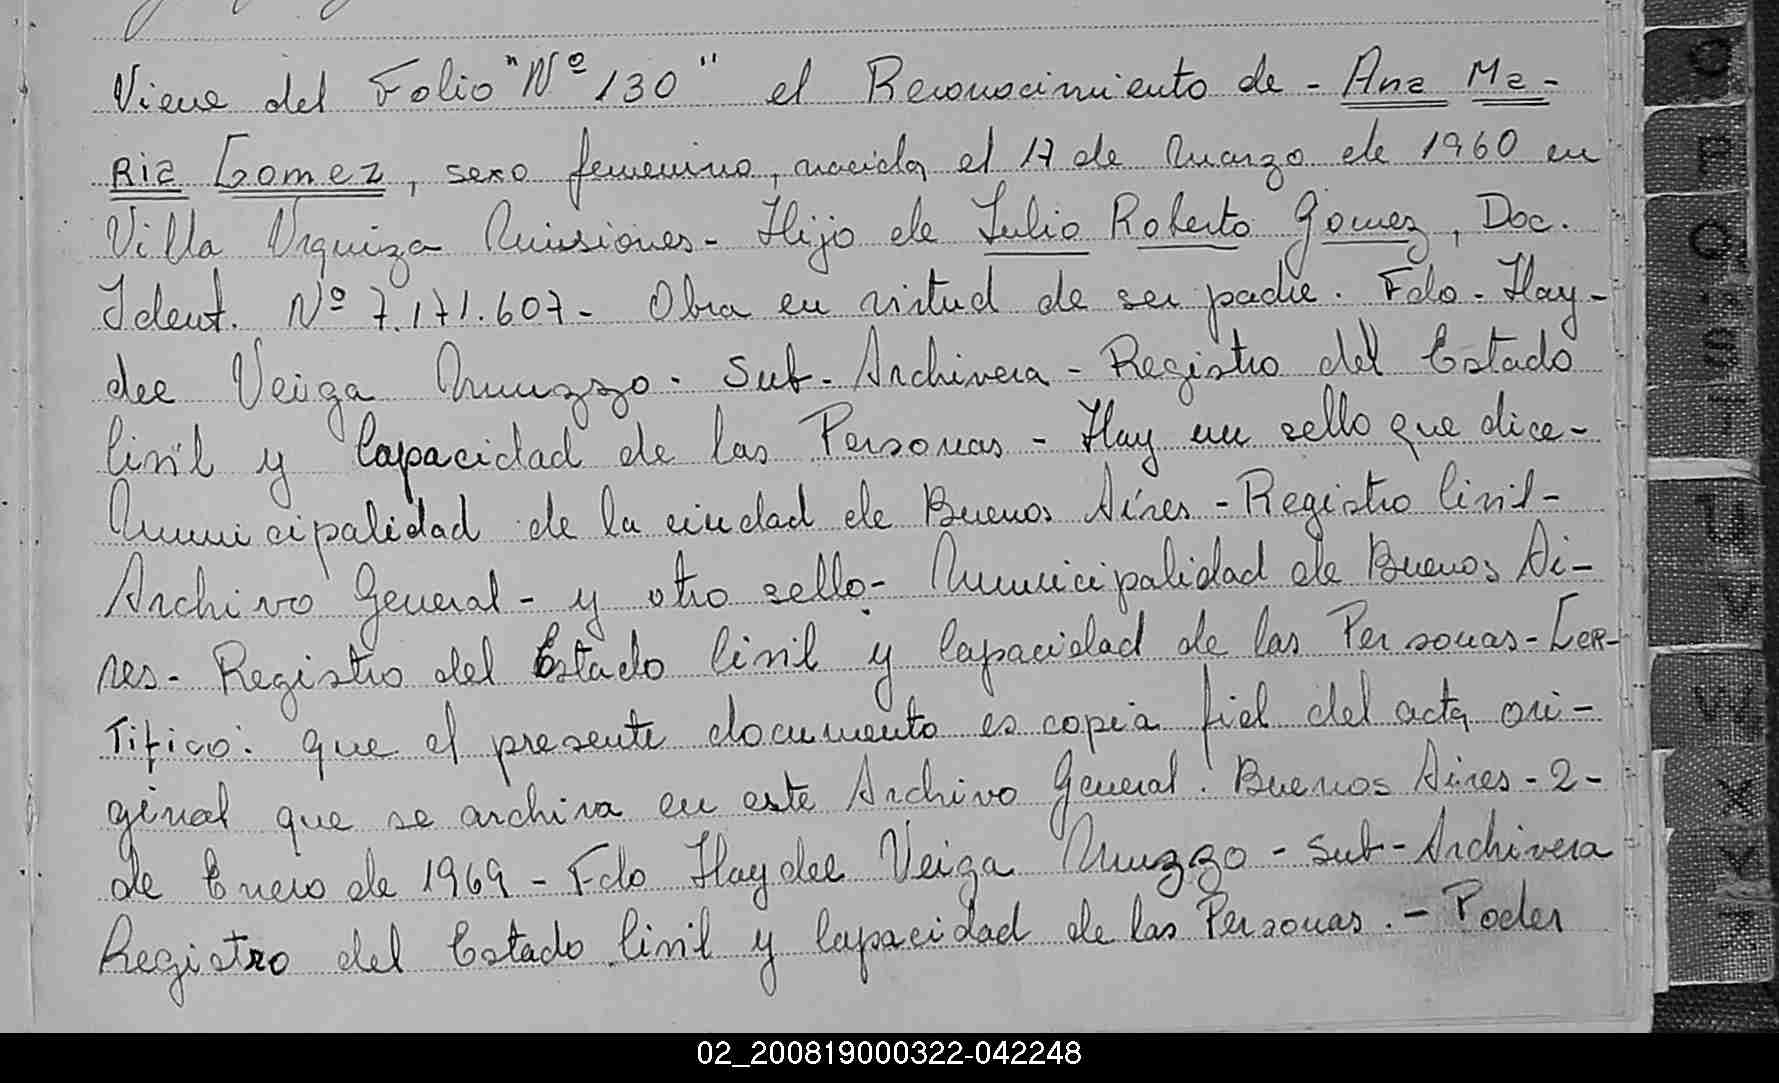 Viene del Folio "Nº 130" el Reconocimiento de - Ana Ma-
Ria Gomez, sexo femenino, nacida el 17 de Marzo de 1960 en
Villa Urquiza Misiones - Hijo de Julio Roberto Gomez, Doc.
Ident. Nº 7.171.607 - Obra en virtud de ser padre. Fdo - Hay-
dee Veiga Muzzo - Sub - Archivera - Registro del Estado
Civil y Capacidad de las Personas - Hay un sello que dice -
Municipalidad de la ciudad de Buenos Aires - Registro Civil -
Archivo General - y otro sello - Municipalidad de Buenos Ai-
res - Registro del Estado Civil y Capacidad de las Personas - Cer-
Tifico: que el presente documento es copia fiel del acta ori-
ginal que se archiva en este Archivo General. Buenos Aires - 2 -
de Enero de 1969 - Fdo Haydee Veiga Muzzo - Sub - Archivera
Registro del Estado Civil y Capacidad de las Personas. - Poder
O
P
Q
S
T
U
V
W
X
Y
02_200819000322-042248